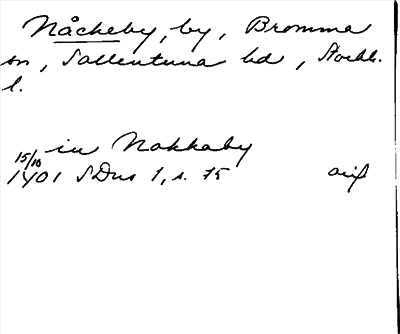 Nåckeby, by, Bromma
sn, Sollentuna hd, Stockh.
l.
in Nokkaby
15/10
1401 SDns 1, s. 75 avs